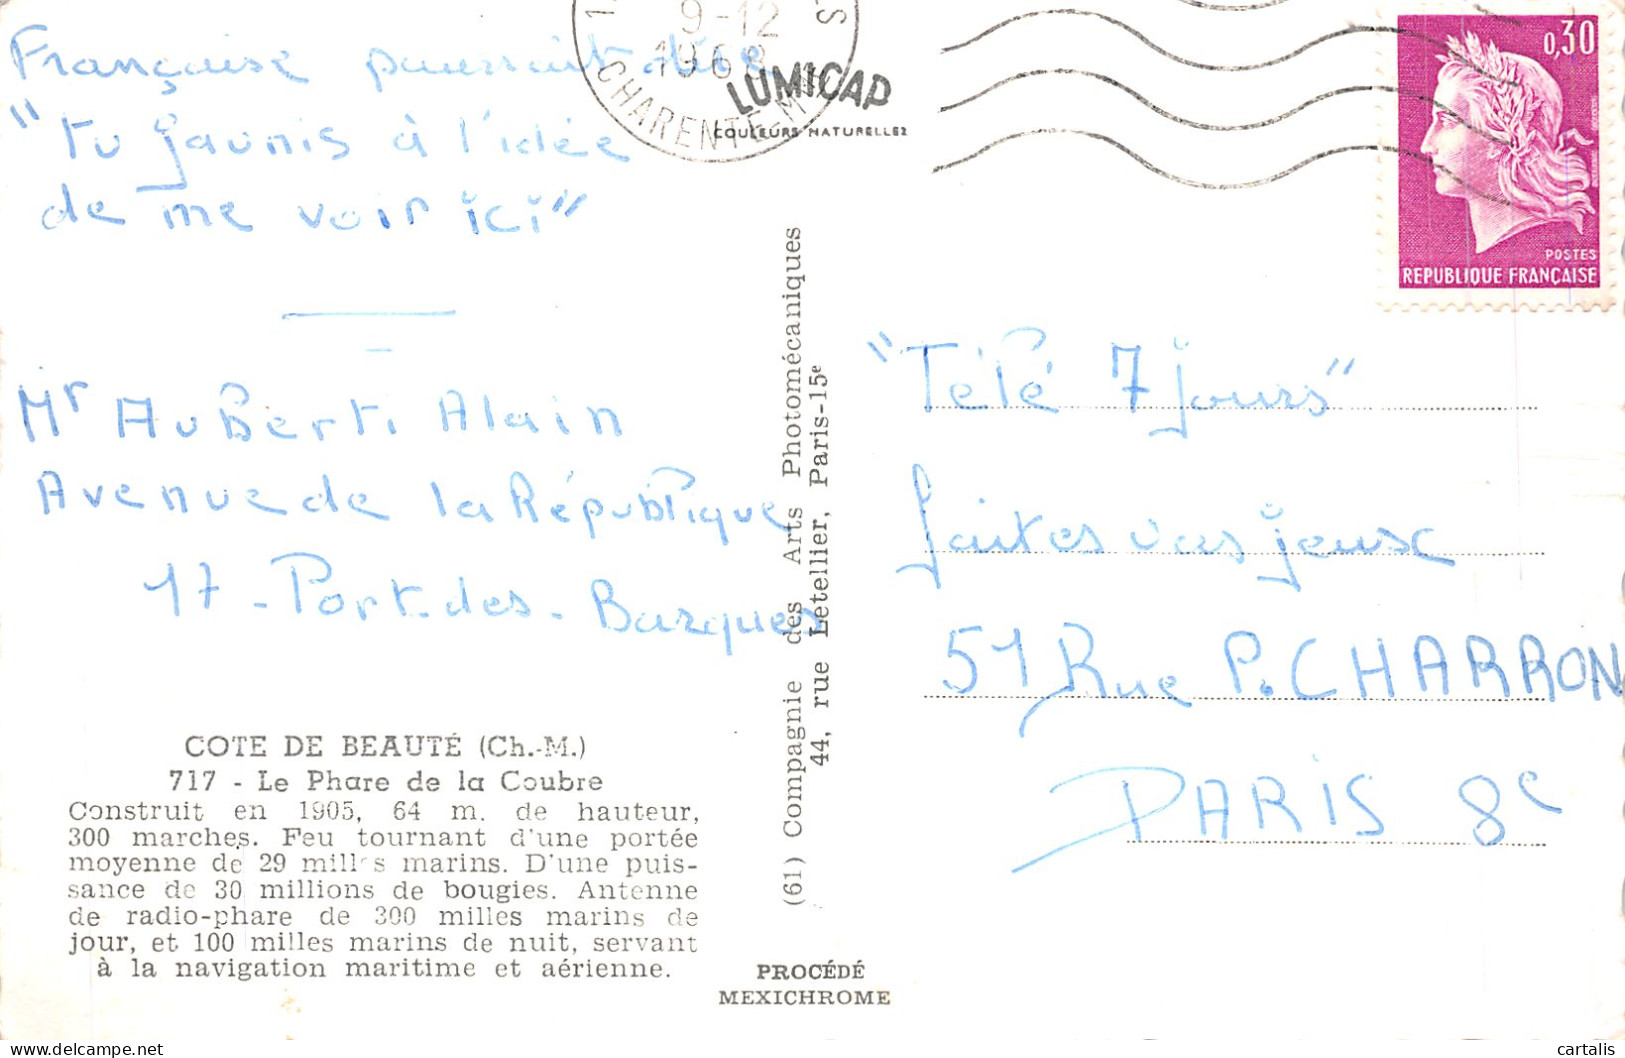 Française pourrait dire
"tu jaunis à l'idée
de me voir ici"
Mr AuBerti Alain
Avenue de la République
17 - Port-des-Barques
COTE DE BEAUTÉ (Ch.-M.)
717 - Le Phare de la Coubre
Construit en 1905, 64 m. de hauteur,
300 marches. Feu tournant d'une portée
moyenne de 29 milles marins. D'une puis-
sance de 30 millions de bougies. Antenne
de radio-phare de 300 milles marins de
jour, et 100 milles marins de nuit, servant
à la navigation maritime et aérienne.
9-12
1968
CHARENTE-M
LUMICAP
COULEURS NATURELLES
(61) Compagnie des Arts Photomécaniques
44, rue Letellier, Paris-15e
PROCÉDÉ
MEXICHROME
0,30
POSTES
REPUBLIQUE FRANÇAISE
"Télé 7 jours"
faites vos jeux
51 Rue P. CHARRON
PARIS 8e
cartalis